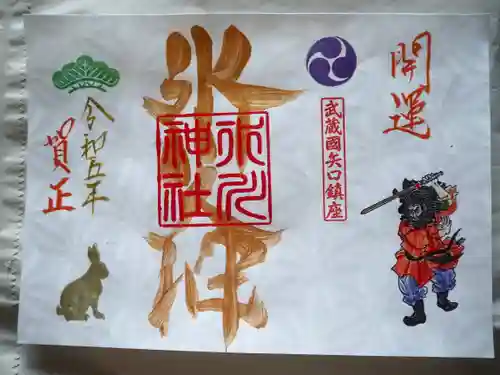 開運
武蔵國矢口鎮座
氷
氷川
神社
令和五年
賀正